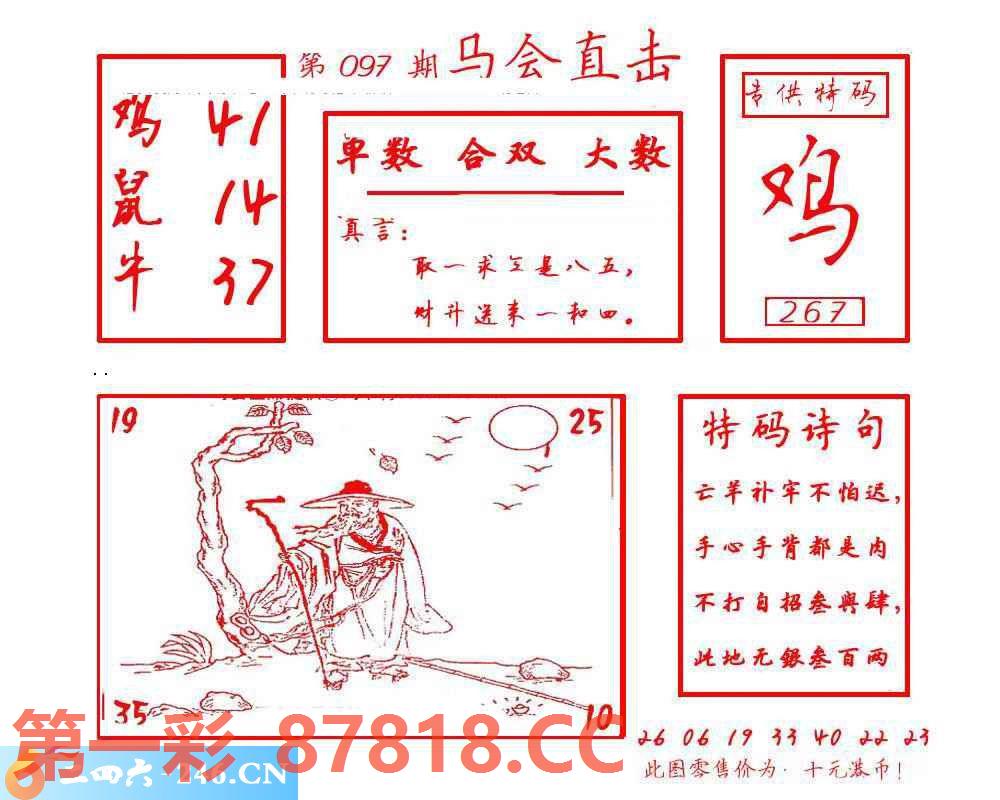 第 097 期 马会直击
鸡 41
鼠 14
牛 37
单数 合双 大数
真言：
取一求三是八五，
财升送来一和四。
专供特码
鸡
267
19
25
35
10
特码诗句
亡羊补牢不怕迟，
手心手背都是肉
不打自招叁與肆，
此地无銀叁百两
26 06 19 33 40 22 23
此图零售价为·十元港币！
第一彩 87818.CC
二四六-246.CN